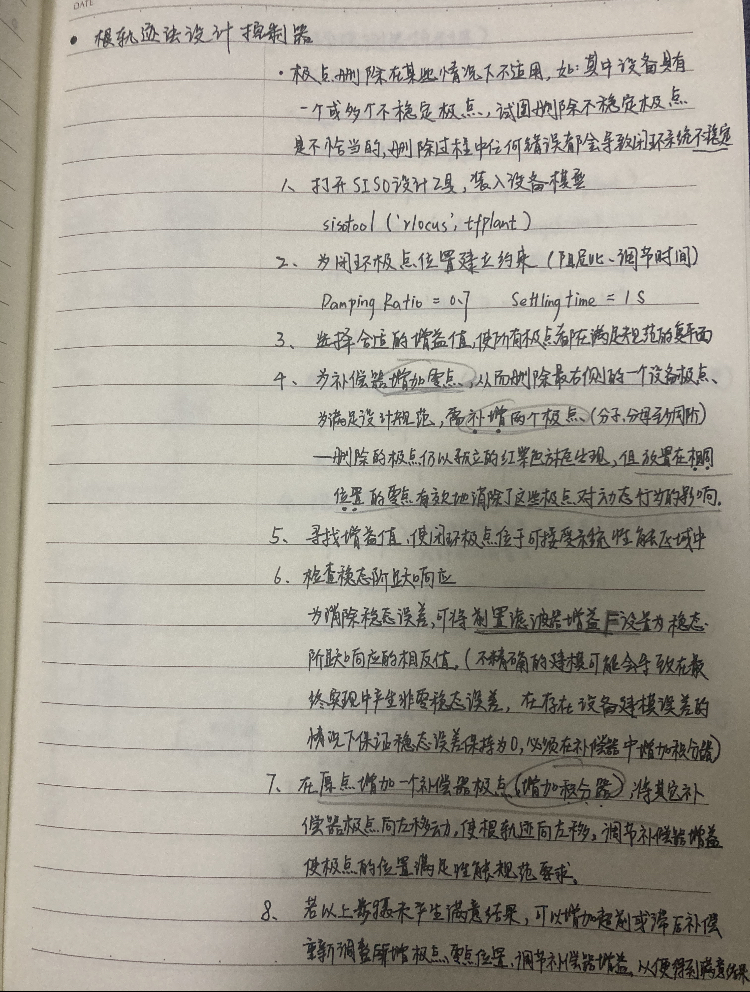 DATE
• 根轨迹法设计控制器
· 极点删除在某些情况下不适用，如：其中设备具有
一个或多个不稳定极点，试图删除不稳定极点
是不恰当的，删除过程中任何错误都会导致闭环系统不稳定
1、打开SISO设计工具，装入设备模型
sisotool ('rlocus', tfplant)
2、为闭环极点位置建立约束（阻尼比、调节时间）
Damping Ratio = 0.7 Settling time = 1 S
3、选择合适的增益值，使所有极点都在满足规范的复平面
4、为补偿器增加零点，从而删除最右侧的一个设备极点、
为满足设计规范，需补增两个极点、(分子、分母至少同阶)
—删除的极点仍以孤立的红紫色对应出现，但放置在相同
位置的零点有效地消除了这些极点对动态行为的影响.
5、寻找增益值，使闭环极点位于可接受系统性能区域中
6、检查稳态阶跃响应
为消除稳态误差，可将前置滤波器增益F设置为稳态
阶跃响应的相反值.（不精确的建模可能会导致在最
终实现中产生非零稳态误差，在存在设备建模误差的
情况下保证稳态误差保持为0，必须在补偿器中增加积分器）
7、在原点增加一个补偿器极点(增加积分器)，将其它补
偿器极点向左移动，使根轨迹向左移，调节补偿器增益
使极点的位置满足性能规范要求。
8、若以上步骤未产生满意结果，可以增加超前或滞后补偿
重新调整新增极点、零点位置、调节补偿器增益，以便得到满意结果